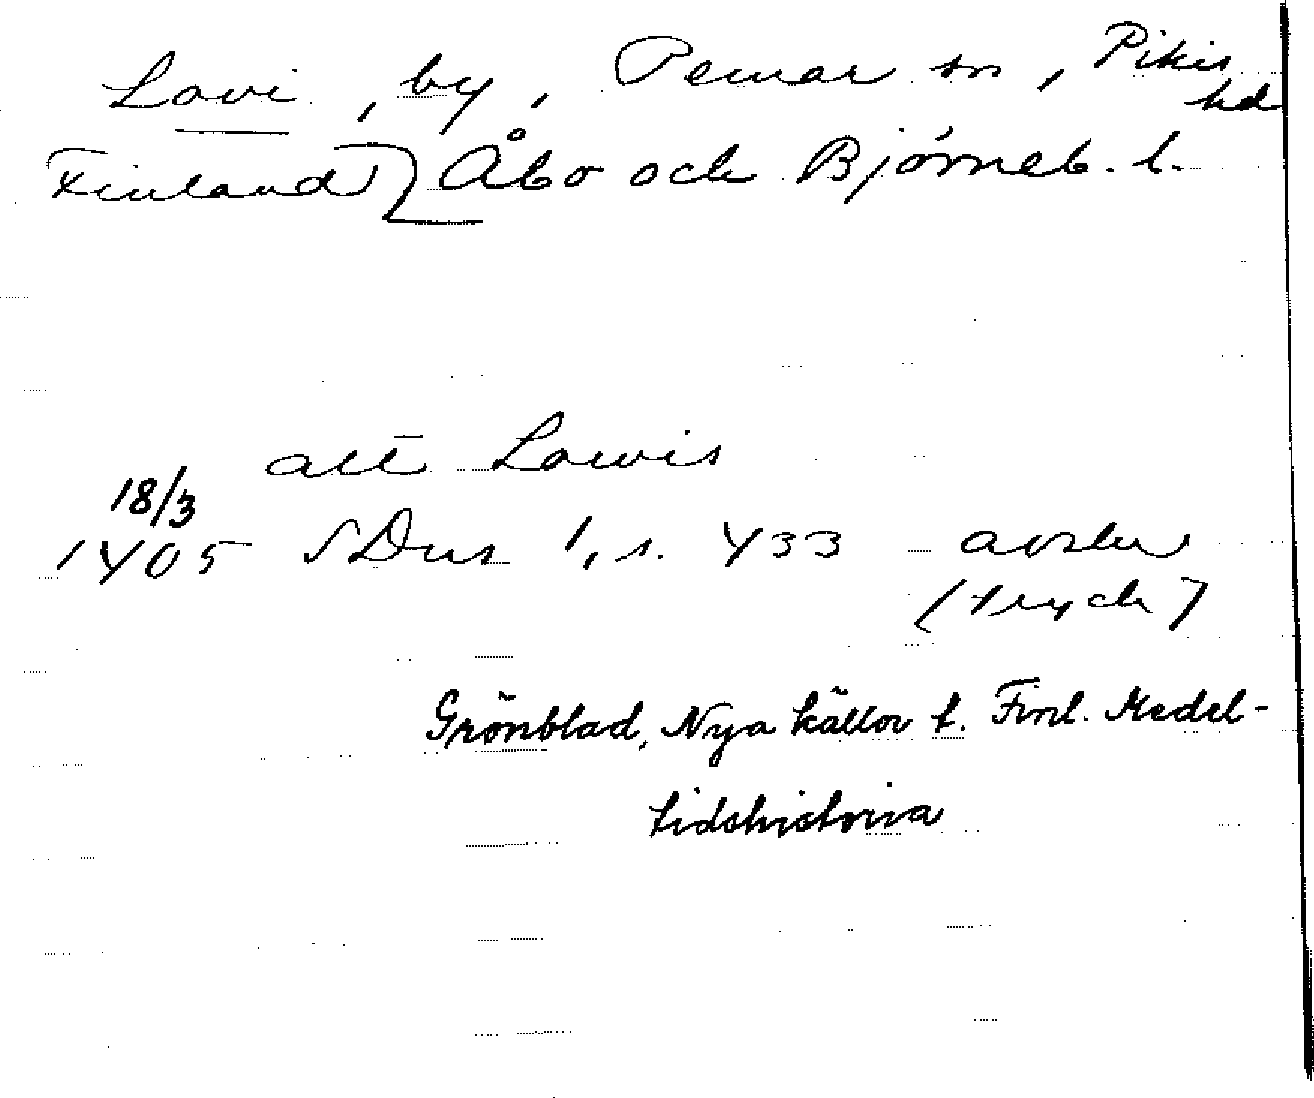 Lovi, by, Pemar sn, Pikis hd
Finland Åbo och Björneb. l.
att Lowis
18/3
1405 SDns 1, s. 433 avskr
(tryck)
Grönblad, Nya källor t. Finl. Medel-
tidshistoria